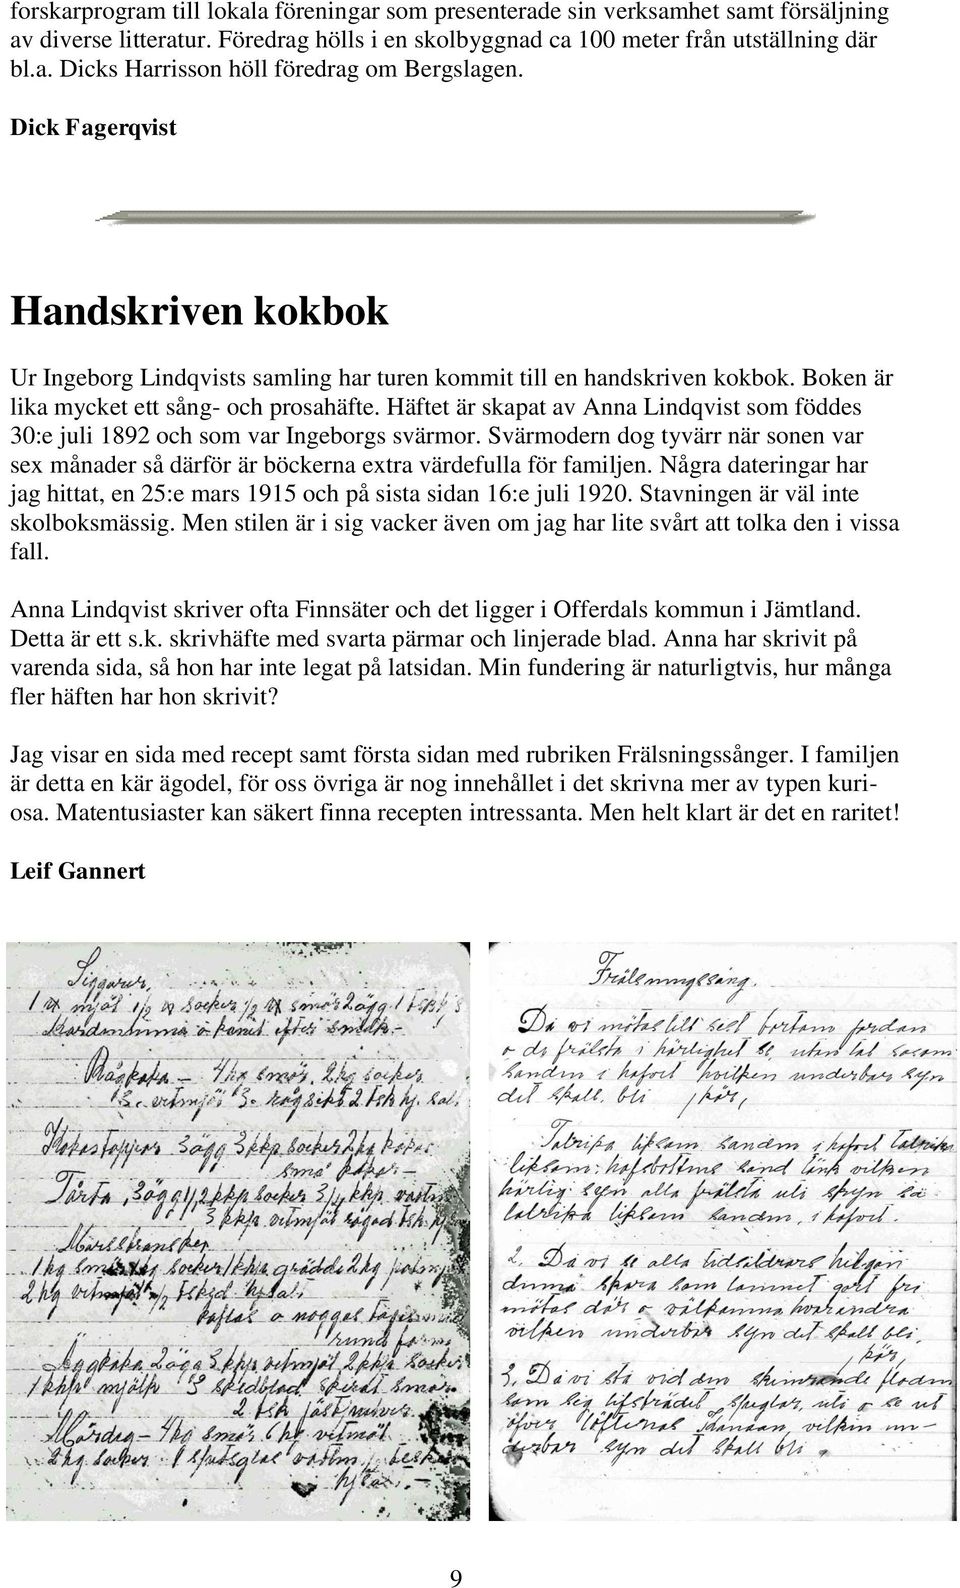 forskarprogram till lokala föreningar som presenterade sin verksamhet samt försäljning
av diverse litteratur. Föredrag hölls i en skolbyggnad ca 100 meter från utställning där
bl.a. Dicks Harrisson höll föredrag om Bergslagen.
Dick Fagerqvist
Handskriven kokbok
Ur Ingeborg Lindqvists samling har turen kommit till en handskriven kokbok. Boken är
lika mycket ett sång- och prosahäfte. Häftet är skapat av Anna Lindqvist som föddes
30:e juli 1892 och som var Ingeborgs svärmor. Svärmodern dog tyvärr när sonen var
sex månader så därför är böckerna extra värdefulla för familjen. Några dateringar har
jag hittat, en 25:e mars 1915 och på sista sidan 16:e juli 1920. Stavningen är väl inte
skolboksmässig. Men stilen är i sig vacker även om jag har lite svårt att tolka den i vissa
fall.
Anna Lindqvist skriver ofta Finnsäter och det ligger i Offerdals kommun i Jämtland.
Detta är ett s.k. skrivhäfte med svarta pärmar och linjerade blad. Anna har skrivit på
varenda sida, så hon har inte legat på latsidan. Min fundering är naturligtvis, hur många
fler häften har hon skrivit?
Jag visar en sida med recept samt första sidan med rubriken Frälsningssånger. I familjen
är detta en kär ägodel, för oss övriga är nog innehållet i det skrivna mer av typen kuri-
osa. Matentusiaster kan säkert finna recepten intressanta. Men helt klart är det en raritet!
Leif Gannert
Siggarur.
mjöl 1/2 socker 1/2 smör 2 ägg 1
Kardemumma o kanel efter smak-
Rågkaka - 4 hg smör. 2 hg socker
vitmjöl 3 rågsikt 2 tsk hj. salt
Kokostoppar 3 ägg 3 kkp socker 2 hg kokos
små kakor-
Tårta, 3 ägg 1 1/2 kkp socker 3/4 kkp. vattn
3 kkp. vitmjöl
1 hg smör socker 1 kkp. grädde 2 hg
2 hg vitmjöl 1/2 tsk hjsalt
kaflas o noggas
rund form
Äggkaka 2 ägg 3 kkp vitmjöl 2 kkp socker
1 kkp mjölk 3 skedblad skirat smör
2 tsk jästpulver
Mördeg - 4 hg smör 6 hg vetmjöl
2 hg socker 1 spetsglas vattn,
hjsalt -
Frälsningssång.
Då vi mötas till sest bortom jordan
o de frälsta i härlighet se, utan tal såsom
sanden i hafvet hvilken underbar syn
det skall. bli / kör,
Talrika liksom sanden i hafvet talrika
liksom: hafsbottens sand tänk vilken
härlig syn alla frälsta uti skyn så
talrika liksom sanden, i hafvet.
2. Då vi se alla tidsåldrars helgon
denna skara som lammet gört fri
mötas där o välkomna hvarandra
vilken underbar syn det skall bli.
/kör,
3. Då vi stå vid den skimrande floden
som sig lifsträdet speglar, uti o se ut
öfver löftenas Kanaan, vilken un-
derbar syn det skall bli.
9